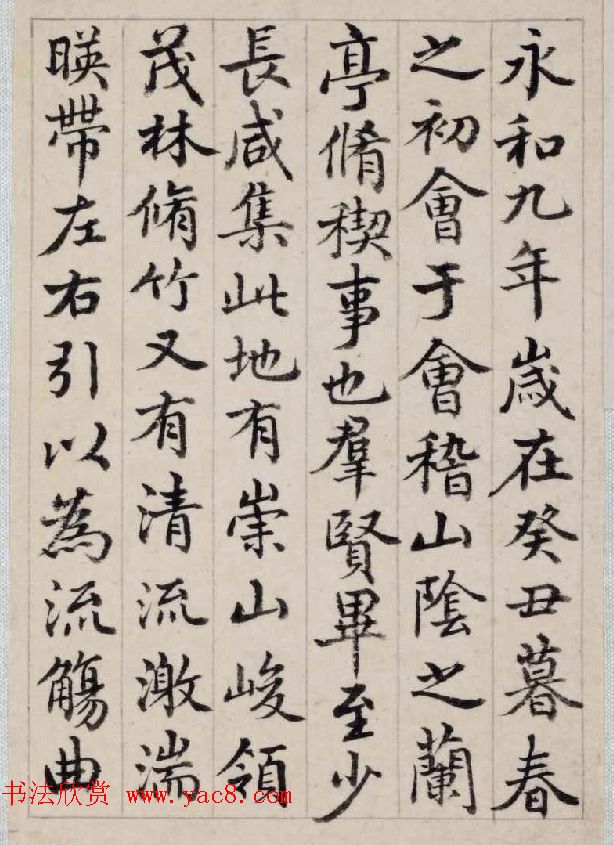 永和九年歲在癸丑暮春
之初會于會稽山陰之蘭
亭脩稧事也羣賢畢至少
長咸集此地有崇山峻領
茂林脩竹又有清流激湍
暎帶左右引以為流觴曲
书法欣赏 www.yac8.com